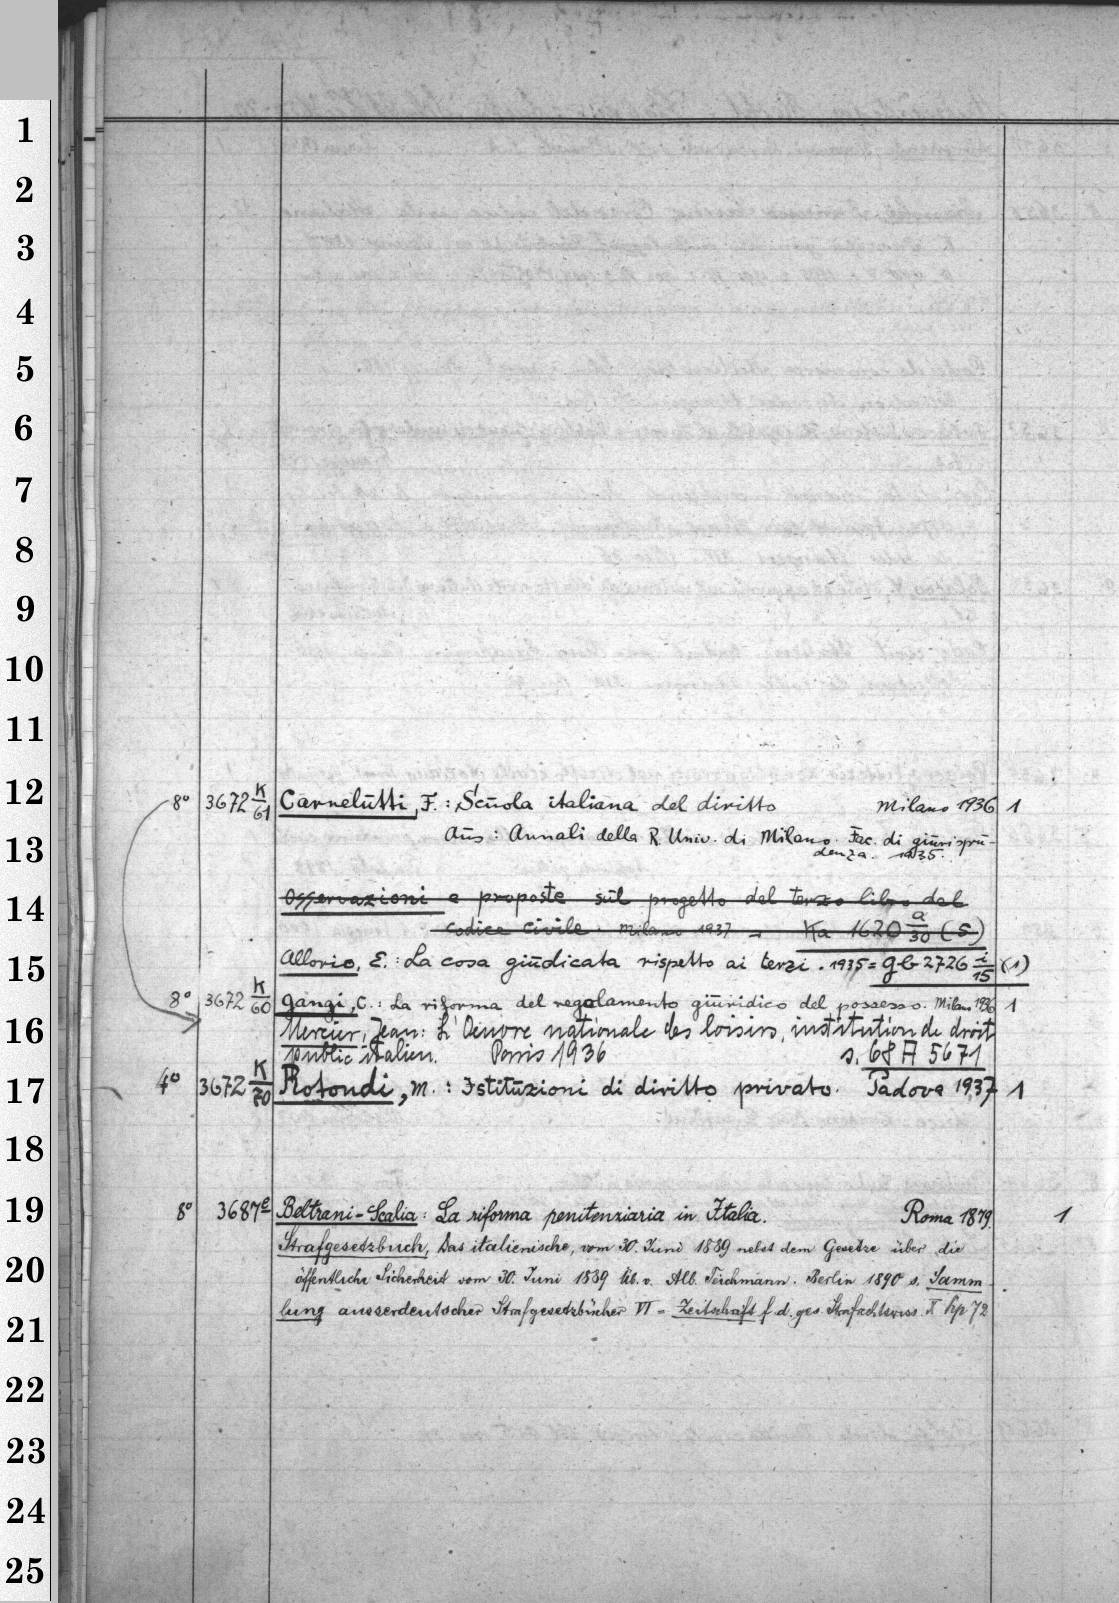 1
2
3
4
5
6
7
8
9
10
11
12
8° 3672 K/61 Carnelutti, F.: Scuola italiana del diritto Milano 1936 1
Aus: Annali della R. Univ. di Milano. Fac. di giurispru-
13
denza. 1935.
14
Osservazioni e proposte sul progetto del terzo libro del
codice civile. Milano 1937 = Ka 1620 a/30 (5)
15
Allorio, E.: La cosa giudicata rispetto ai terzi. 1935 = Gb 2726 i/15 (1)
8° 3672 K/60 Gangi, C.: La riforma del regolamento giuridico del possesso. Milano 1936 1
16
Mercier, Jean: L'Oeuvre nationale des loisirs, institution de droit
public italien. Paris 1936 s. 68 A 5671
17
4° 3672 K/70 Rotondi, M.: Istituzioni di diritto privato. Padova 1937 1
18
19
8° 3687e Beltrani-Scalia: La riforma penitenziaria in Italia. Roma 1879. 1
Strafgesetzbuch, Das italienische, vom 30. Juni 1889 nebst dem Gesetze über die
20
öffentliche Sicherheit vom 30. Juni 1889 Üb. v. Alb. Teichmann. Berlin 1890 s. Samm-
lung ausserdeutscher Strafgesetzbücher VI = Zeitschrift f. d. ges. Strafrechtswiss. X Hp 72
21
22
23
24
25